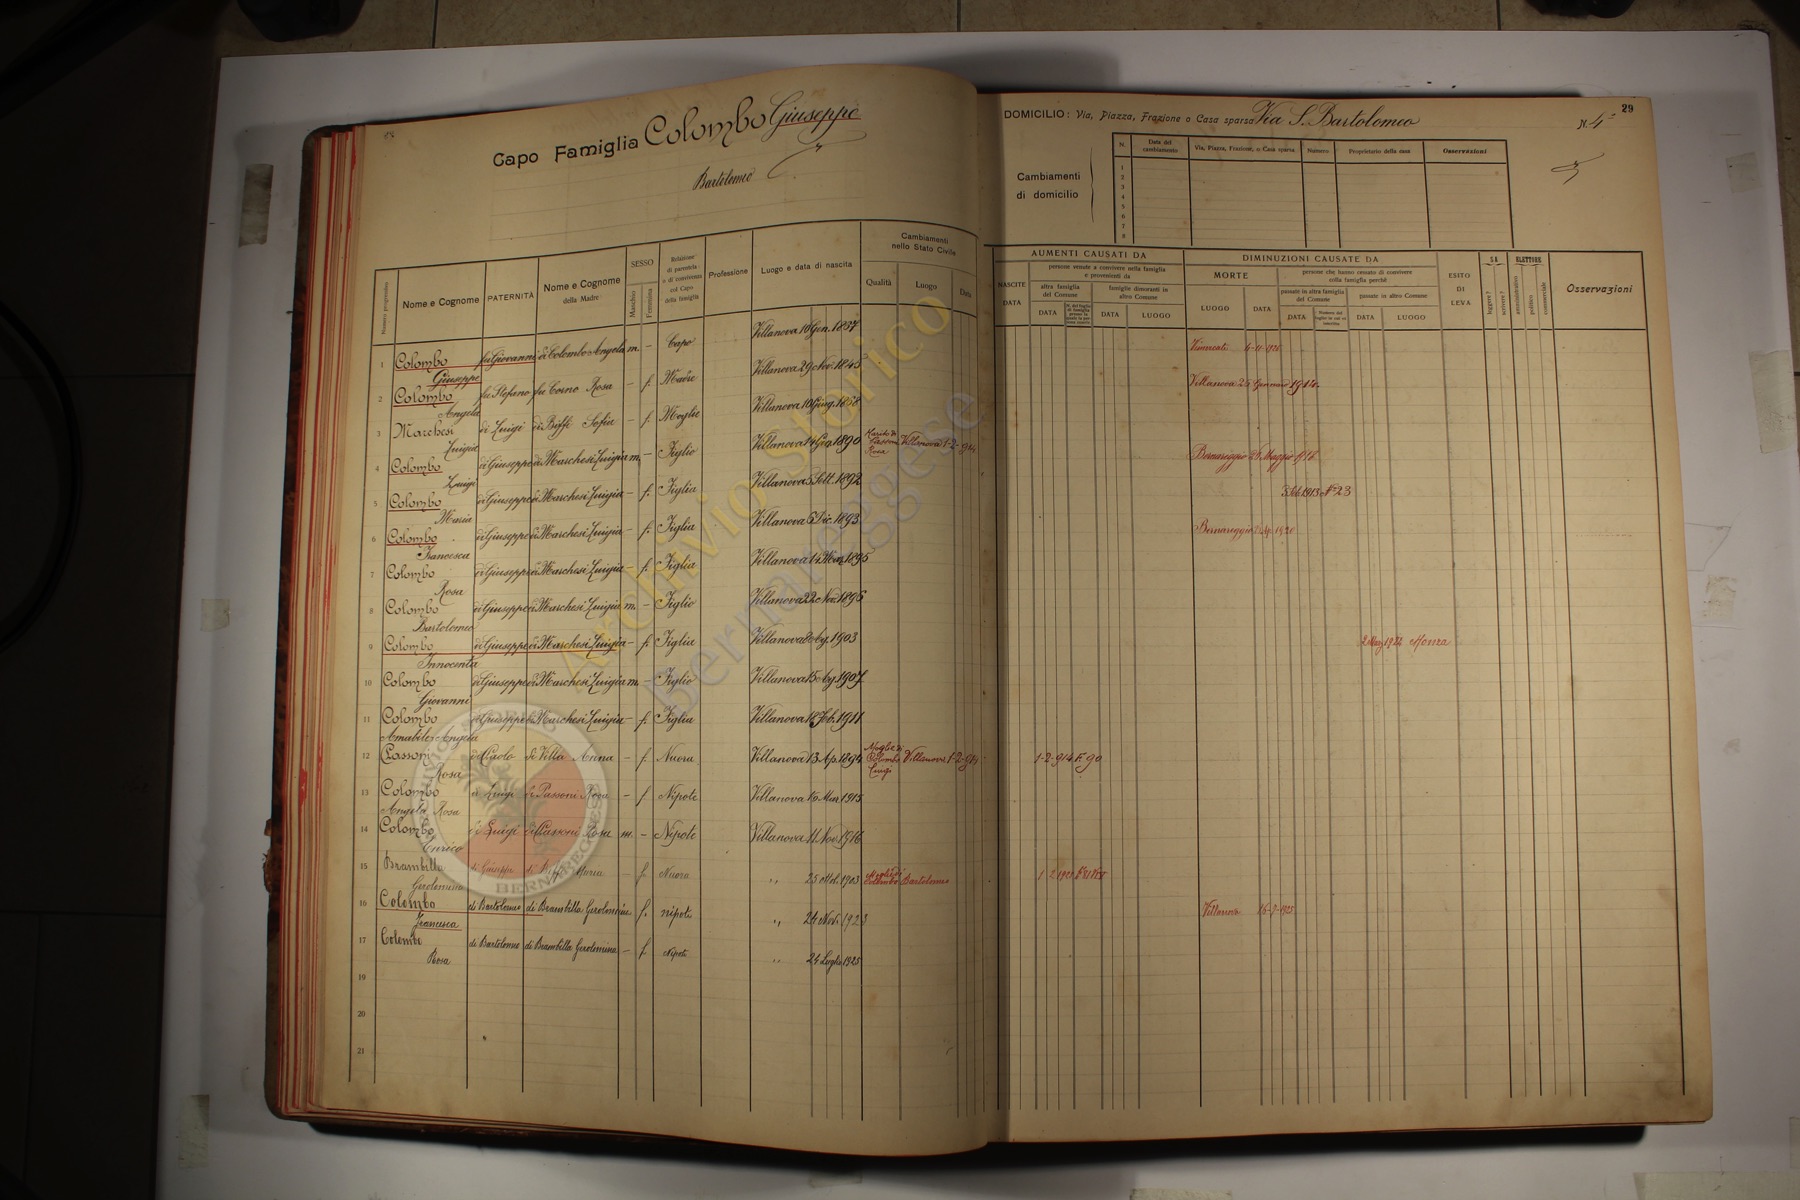 Capo Famiglia Colombo Giuseppe
Bartolomeo
DOMICILIO: Via, Piazza, Frazione o Casa sparsa Via S. Bartolomeo
N. 4
29
Cambiamenti di domicilio
N. Data del cambiamento Via, Piazza, Frazione, o Casa sparsa Numero Proprietario della casa Osservazioni
1
2
3
4
5
6
7
8
Numero progressivo Nome e Cognome PATERNITÀ Nome e Cognome della Madre SESSO Maschio Femmina Relazione di parentela o di convivenza col Capo della famiglia Professione Luogo e data di nascita Cambiamenti nello Stato Civile Qualità Luogo Data
AUMENTI CAUSATI DA
NASCITE DATA
persone venute a convivere nella famiglia e provenienti da
altra famiglia del Comune DATA
famiglie dimoranti in altro Comune DATA LUOGO
DIMINUZIONI CAUSATE DA
MORTE LUOGO DATA
persone che hanno cessato di convivere colla famiglia perchè
passate in altra famiglia del Comune DATA
passate in altro Comune DATA LUOGO
ESITO DI LEVA
SA leggere? scrivere?
ELETTORE amministrativo politico commerciale
Osservazioni
1 Colombo Giuseppe fu Giovanni di Colombo Angela m. – Capo Villanova 16 Gen. 1857 Vimercate 4-11-1926
2 Colombo Angela fu Stefano fu Corno Rosa – f. Madre Villanova 29 Nov. 1845 Villanova 25 Gennaio 1914.
3 Marchesi Luigia di Luigi di Biffi Sofia – f. Moglie Villanova 10 Giug. 1858
4 Colombo Luigi di Giuseppe di Marchesi Luigia m. – Figlio Villanova 14 Gig. 1890 Marito di Passoni Rosa Villanova 1-2-914 Bernareggio Maggio
5 Colombo Maria di Giuseppe di Marchesi Luigia – f. Figlia Villanova 5 Sett. 1892 Feb. 1913 N° 23
6 Colombo Francesca di Giuseppe di Marchesi Luigia – f. Figlia Villanova 6 Dic. 1893 Bernareggio 1920
7 Colombo Rosa di Giuseppe di Marchesi Luigia – f. Figlia Villanova 14 Mar. 1895
8 Colombo Bartolomeo di Giuseppe di Marchesi Luigia m. – Figlio Villanova 22 Nov. 1896
9 Colombo Innocenta di Giuseppe di Marchesi Luigia – f. Figlia Villanova Ag. 1903 2 Mag 1922 Monza
10 Colombo Giovanni di Giuseppe di Marchesi Luigia m. – Figlio Villanova 15 Ag. 1907
11 Colombo Amabile Angela di Giuseppe di Marchesi Luigia – f. Figlia Villanova 18 Feb. 1911
12 Passoni Rosa di Paolo di Villa Anna – f. Nuora Villanova 13 Ap. 1894 Moglie di Colombo Luigi Villanova 1-2-914 1-2-914 F. 90
13 Colombo Angela Rosa di Luigi di Passoni Rosa – f. Nipote Villanova 10 Mar. 1915
14 Colombo Enrico di Luigi di Passoni Rosa m. – Nipote Villanova 11 Nov. 1916
15 Brambilla Girolomina di Giuseppe di Biffi Maria – f. Nuora ,, 25 Ott. 1903 Moglie di Colombo Bartolomeo
16 Colombo Francesca di Bartolomeo di Brambilla Girolomina f. nipote ,, 24 Nov. 1923 Villanova 16-7-1925
17 Colombo Rosa di Bartolomeo di Brambilla Girolomina – f. Nipote ,, 24 Luglio 1925
19
20
21
Archivio Storico
Bernareggese
ARCHIVIO STORICO
BERNAREGGESE